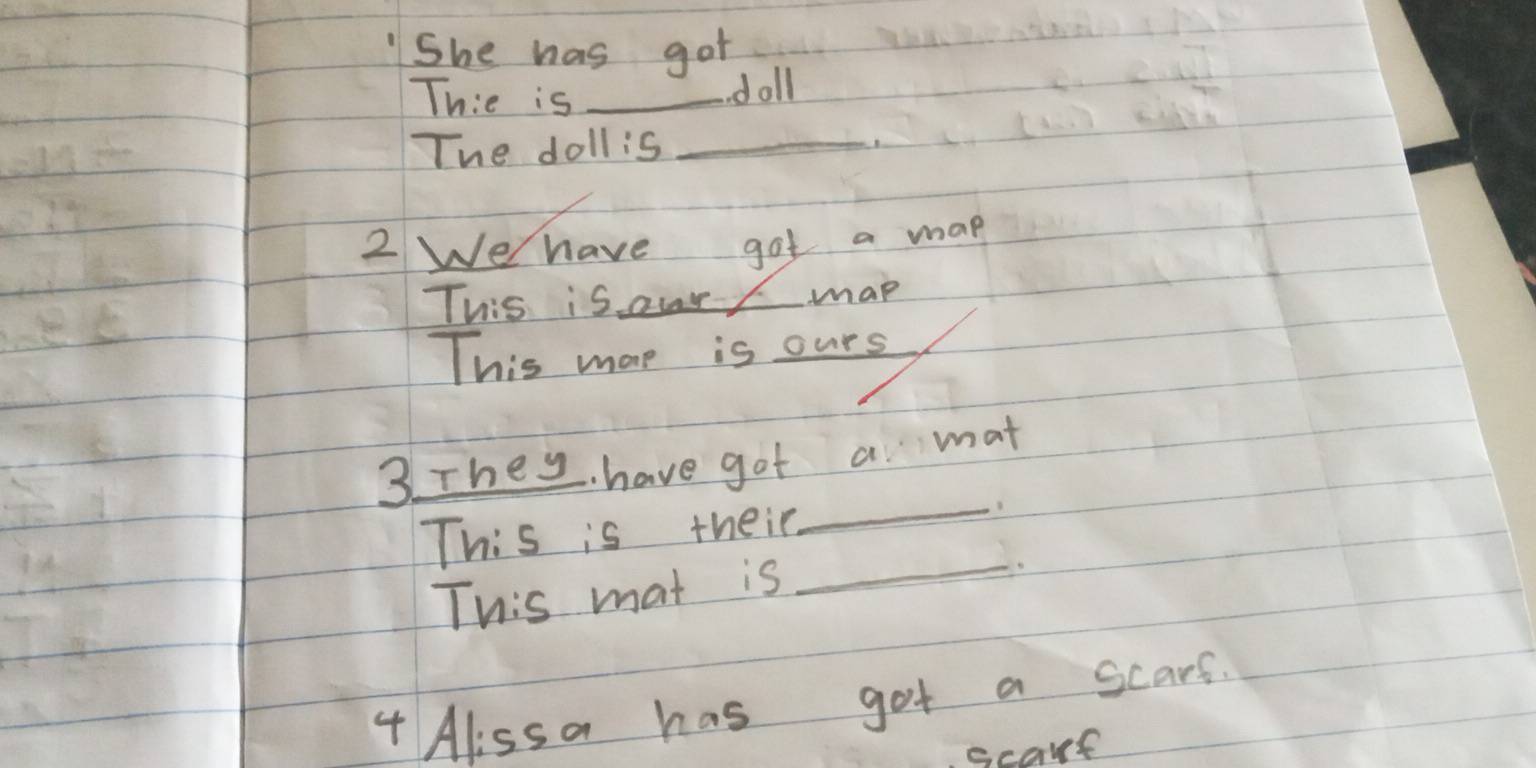 1 She has got
Thie is ______ doll
The doll is ______.
2 We have got a map
This is our map
This map is ours
3 They have got a mat
This is their ______.
This mat is ______.
4 Alissa has got a scarf.
scarf